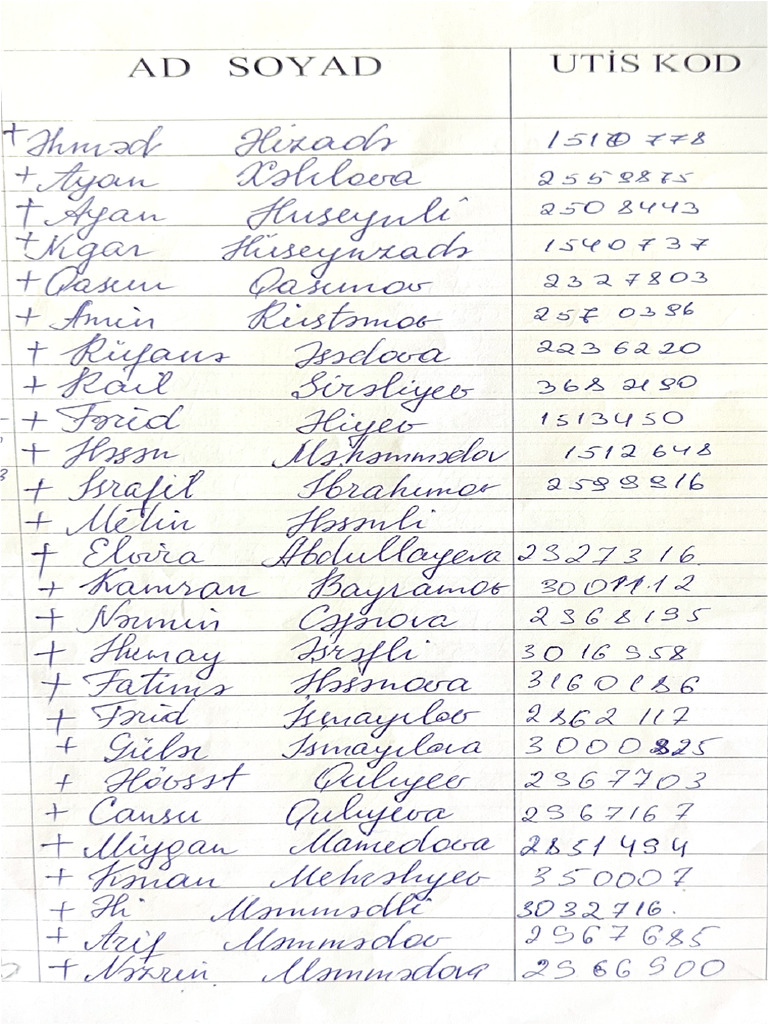 AD SOYAD UTİS KOD
+ Əhməd Əlizadə 1510778
+ Ayan Xəlilova 2559875
+ Ayan Huseynli 2508443
+ Nigar Hüseynzadə 1540737
+ Qasım Qasımov 2327803
+ Amin Rüstəmov 2570396
+ Rüfanə Əsədova 2236220
+ Rail Şirəliyev
+ Fərid Əliyev 1513450
+ Həsən Məhəmmədov 1512648
+ İsrafil İbrahimov 2599916
+ Metin Həsənli
+ Elvira Abdullayeva 2927316
+ Kamran Bayramov 3001112
+ Nərmin Cəfərova 2968195
+ Humay İsrəfli 3016958
+ Fatimə Həsənova 3160186
+ Fərid İsmayılov 2862117
+ Gülər İsmayılova 3000825
+ Hövsət Quliyev 2967703
+ Cansu Quliyeva 2967167
+ Müjgan Mamedova 2851494
+ Kənan 350007
+ Əli Məmmədli 3032716.
+ Arif Məmmədov 2967685
+ Nəzrin Məmmədova 2966900